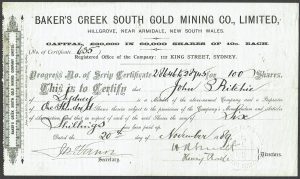 BAKER'S CREEK SOUTH GOLD MINING CO., LIMITED,
HILLGROVE, NEAR ARMIDALE, NEW SOUTH WALES.
CAPITAL, £30,000 IN 60,000 SHARES OF 10s. EACH.
(No. of Certificate, 655)
Registered Office of the Company: 112 KING STREET, SYDNEY.
Progress No. of Scrip Certificate for 100 Shares.
This is to Certify that John Ritchie
of Sydney is a Member of the abovenamed Company and is Proprietor
of One Hundred Shares therein subject to the provision of the Company's Memorandum and Articles
of Association and that in respect of each of the said Shares the sum of Six
Shillings has been paid up.
Dated the 20th day of November 1889
Secretary.
Directors.